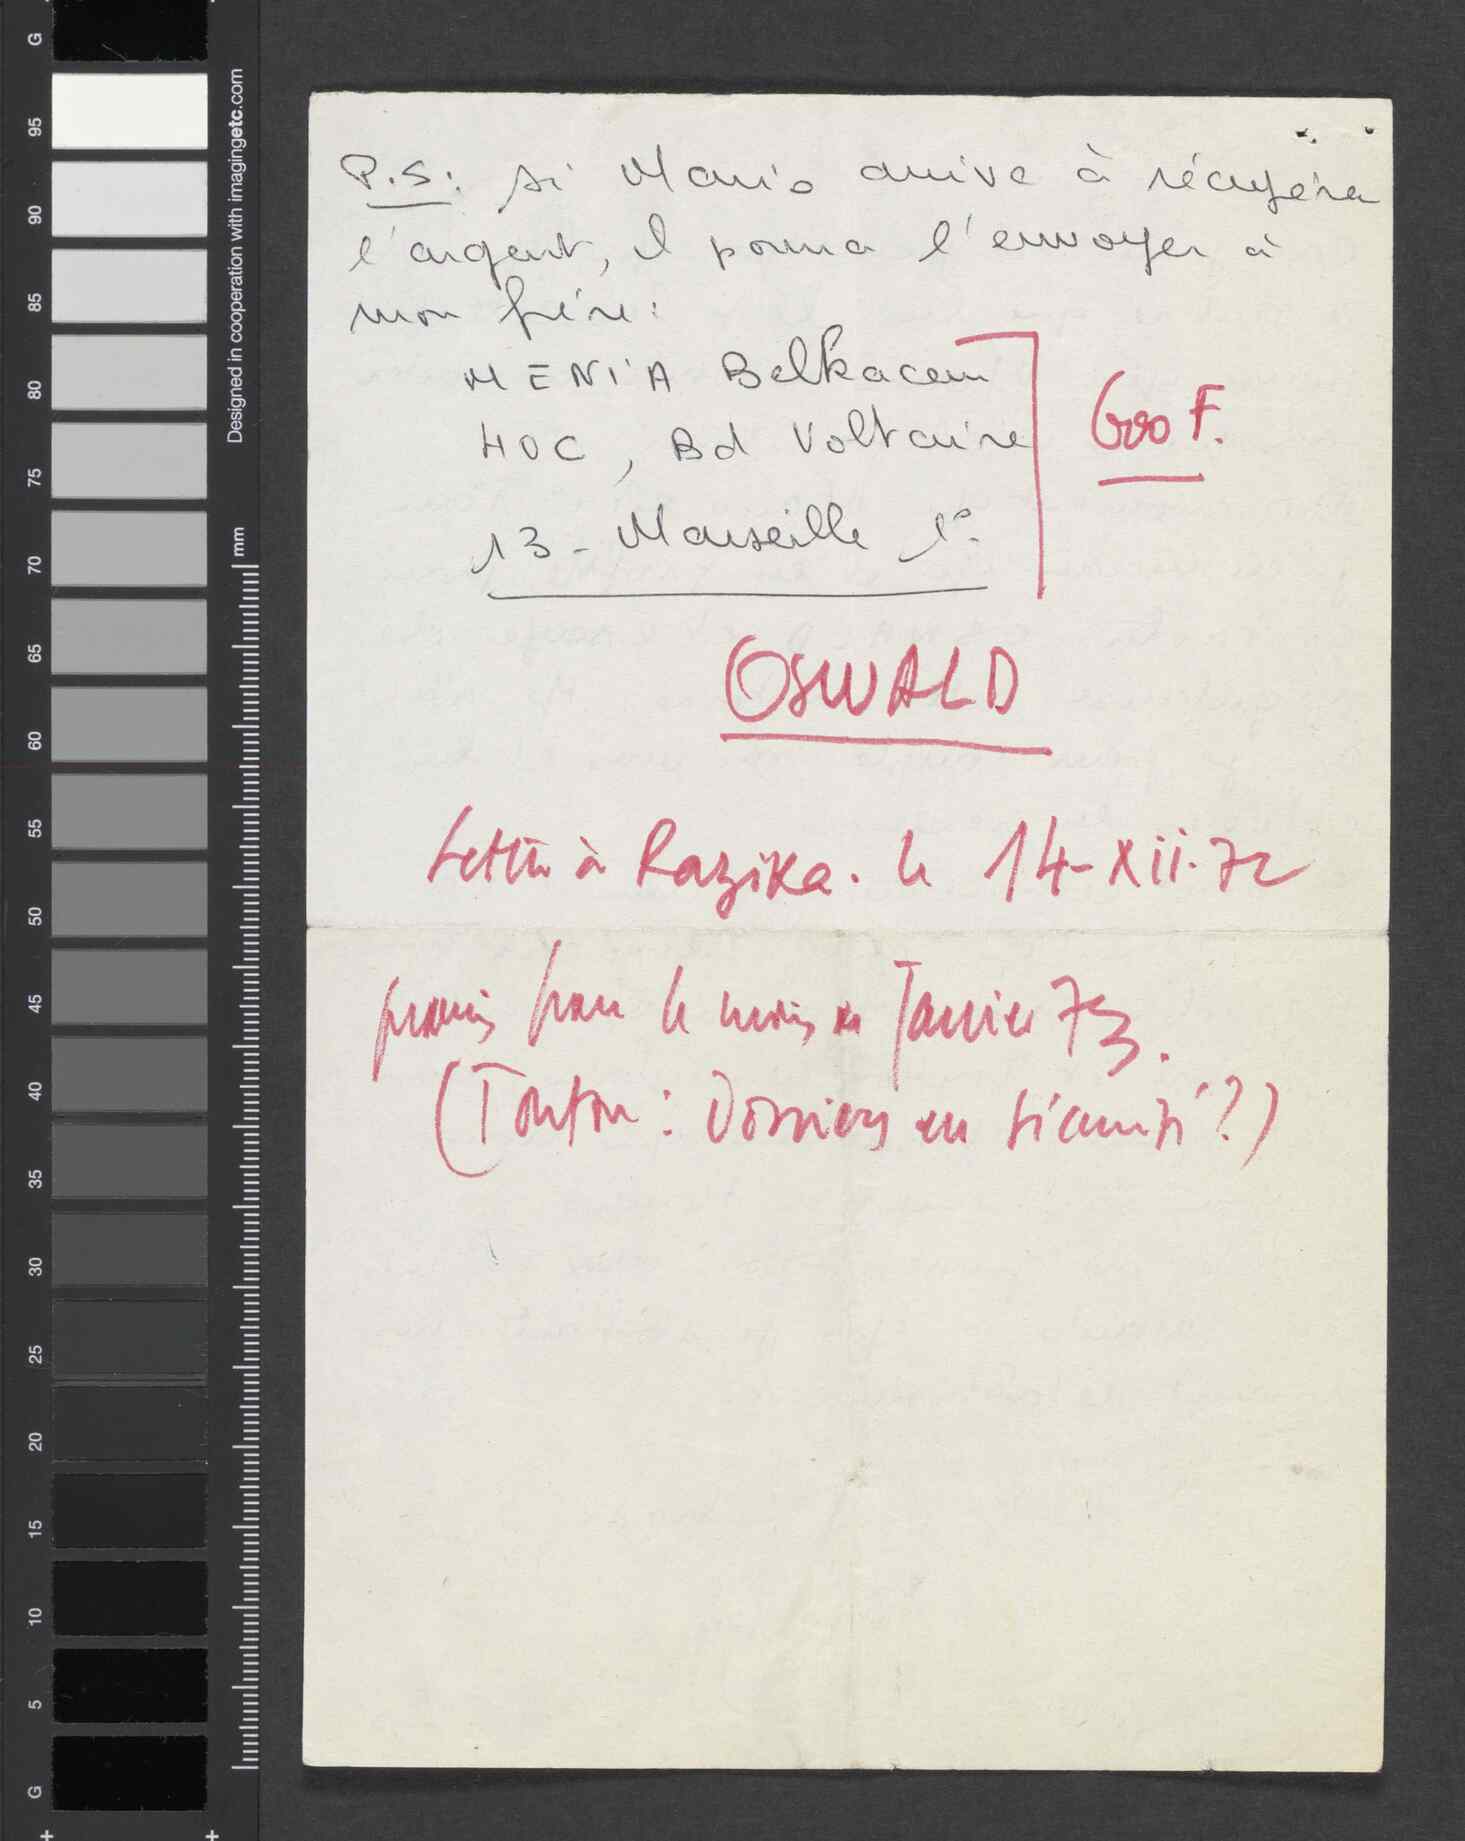 P.S: si Mario arrive à récupérer
l'argent, il pourra l'envoyer à
mon frère:
MENIA Belkacem
HOC, Bd Voltaire
13 - Marseille 1°
600 F.
OSWALD
Lettre à Razika. le 14-XII-72
promis pour le mois de Janvier 73.
(Tonton: Dossiers en sécurité?)
Designed in cooperation with imagingetc.com
mm
G
95
90
85
80
75
70
65
60
55
50
45
40
35
30
25
20
15
10
5
G